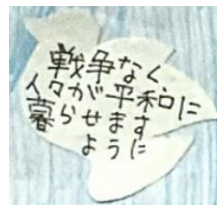 戦争なく
人々が平和に
暮らせます
ように